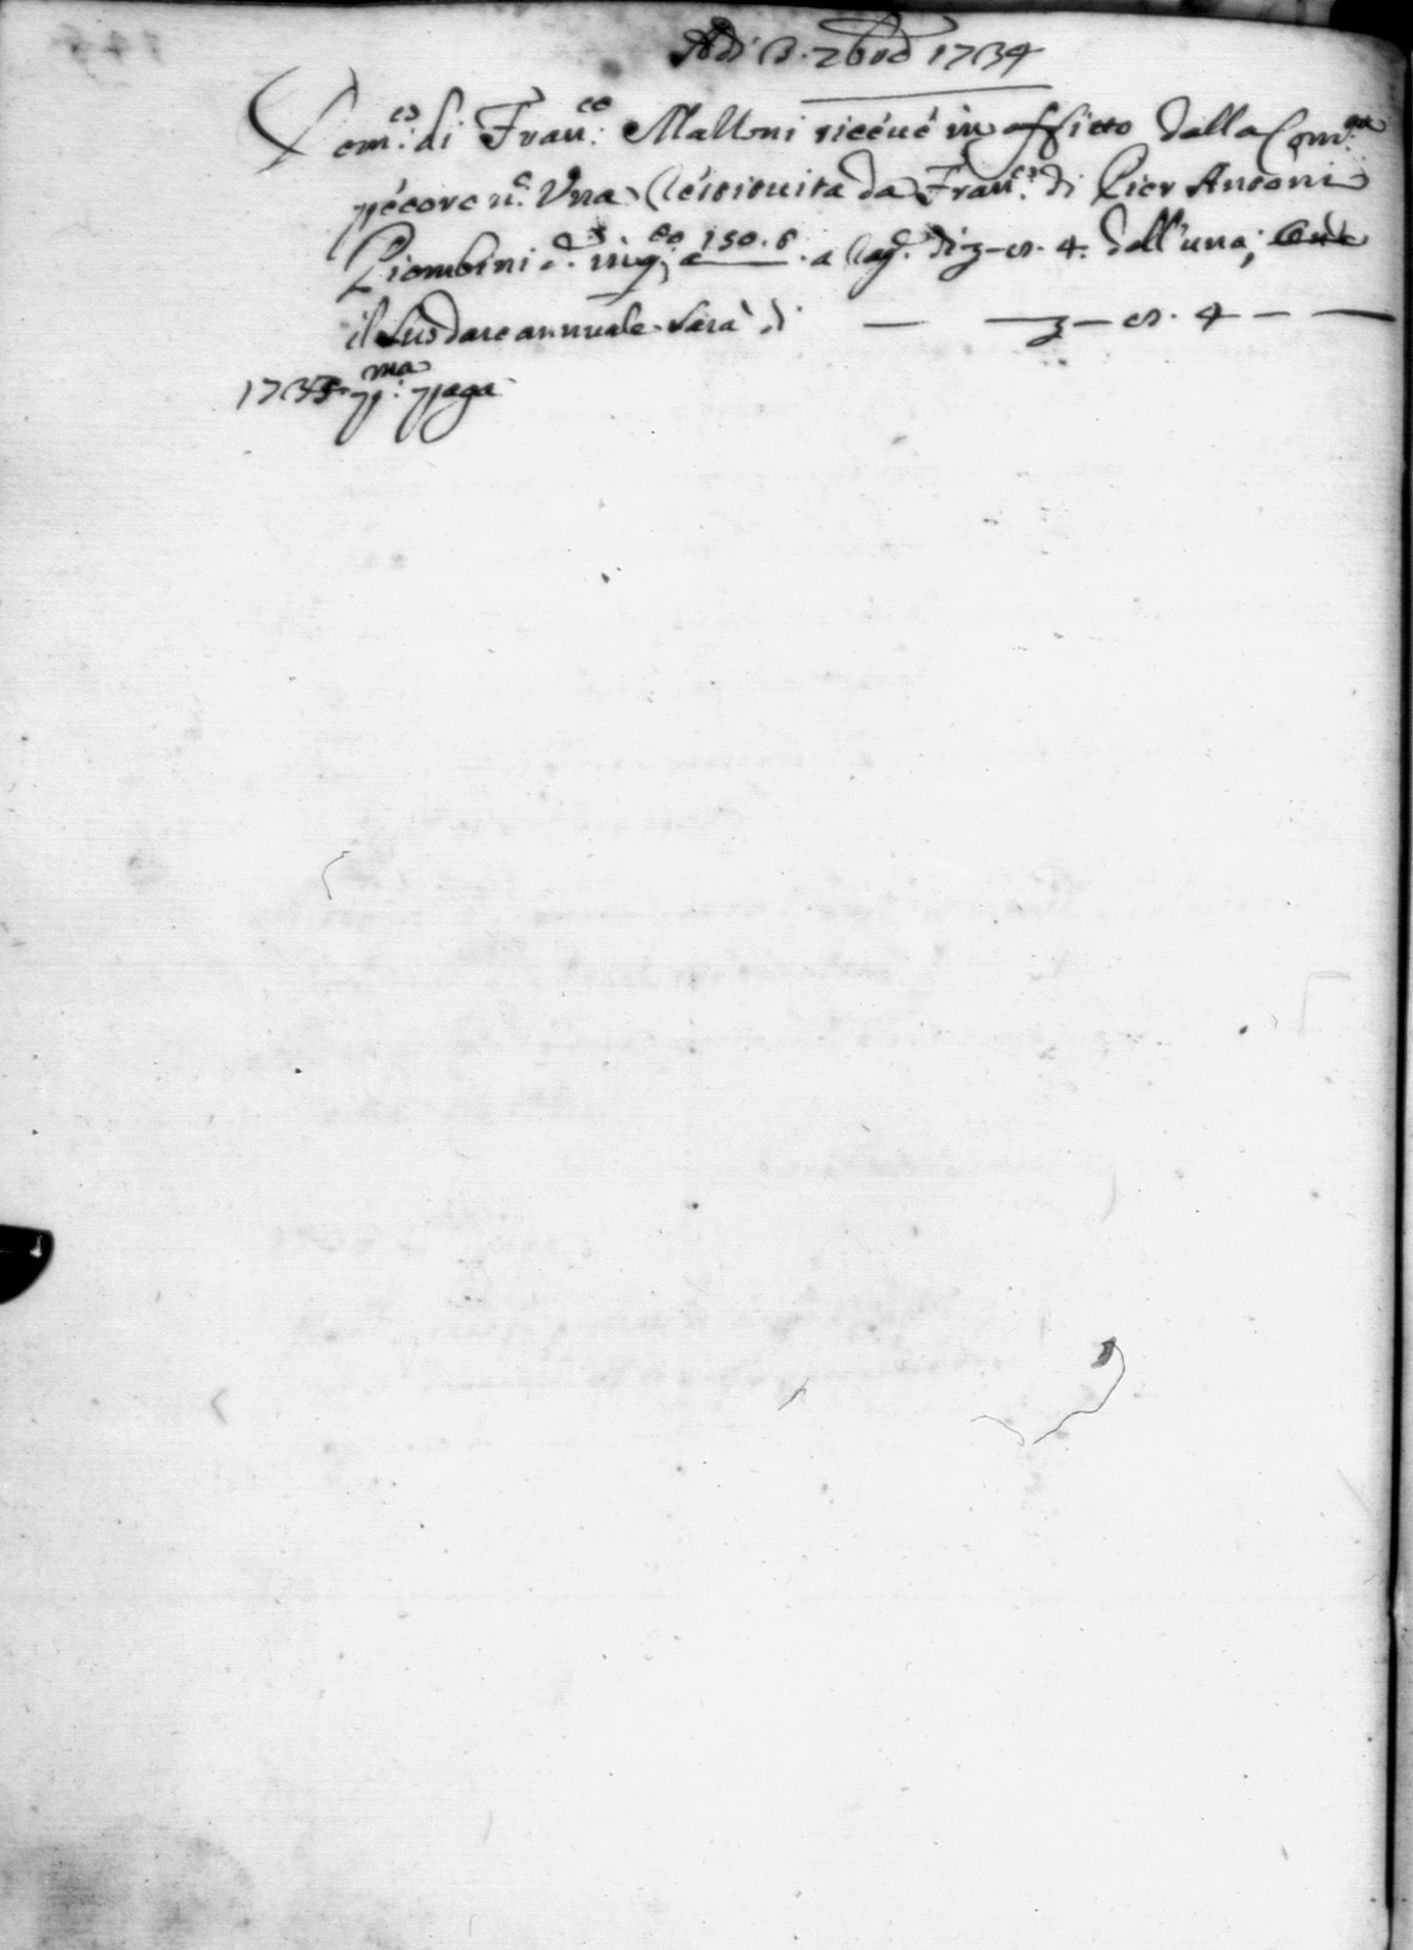 Adi 3. 7bre 1734
Dom.co di Fran.co Maltoni riceué in affitto dalla Com.ta
pecore n.o Vna restituita da Fran.co di Pier Antoni
Piombini d.o in q.o a c.o 150. a rag.e di 4. dall'una; onde
il suo dare annuale sarà di — 4 —
1735 p.ma paga